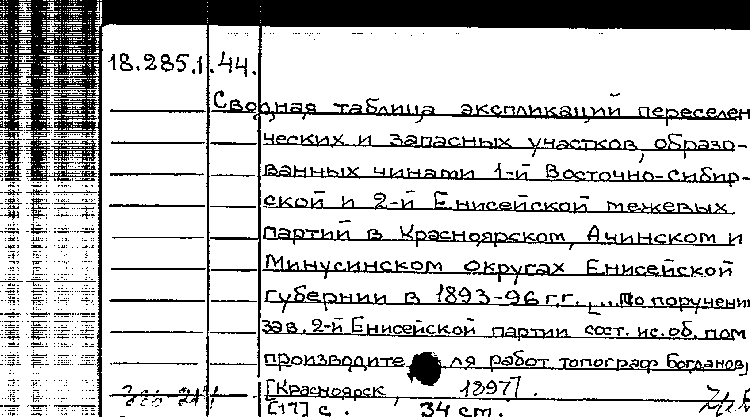 18.285.1.44.
Сводная таблица экспликаций переселен
ческих и запасных участков, образо-
ванных чинами 1-й Восточно-сибир-
ской и 2-й Енисейской межевых
партий в Красноярском, Ачинском и
Минусинском округах Енисейской
губернии в 1893-96 г.г. [... По поручени
зав. 2-й Енисейской партии сост. ис. об. пом
производите ля работ топограф Богданов]
[Красноярск, 1897].
[17] с. 34 ст.